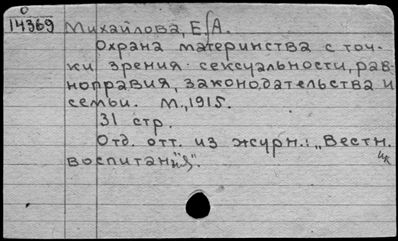 О
14369 Михайлова, Е.А.
Охрана материнства с точ-
ки зрения сексуальности, рав-
ноправия, законодательства и
семьи. М., 1915.
31 стр.
Отд. отт. из журн.: „Вестн.
воспитания".